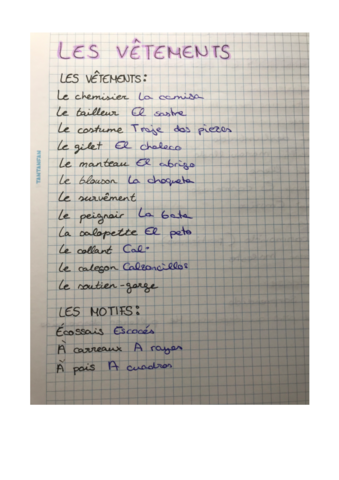 LES VÊTEMENTS
LES VÊTEMENTS:
Le chemisier La camisa
Le tailleur El sastre
Le costume Traje dos piezas
Le gilet El chaleco
Le manteau El abrigo
Le blouson La chaqueta
Le survêment
Le peignoir La bata
La salopette El peto
Le collant Cal-
Le caleçon Calzoncillos
Le soutien-gorge
LES MOTIFS:
Écossais Escocés
À carreaux A rayas
À pois A cuadros